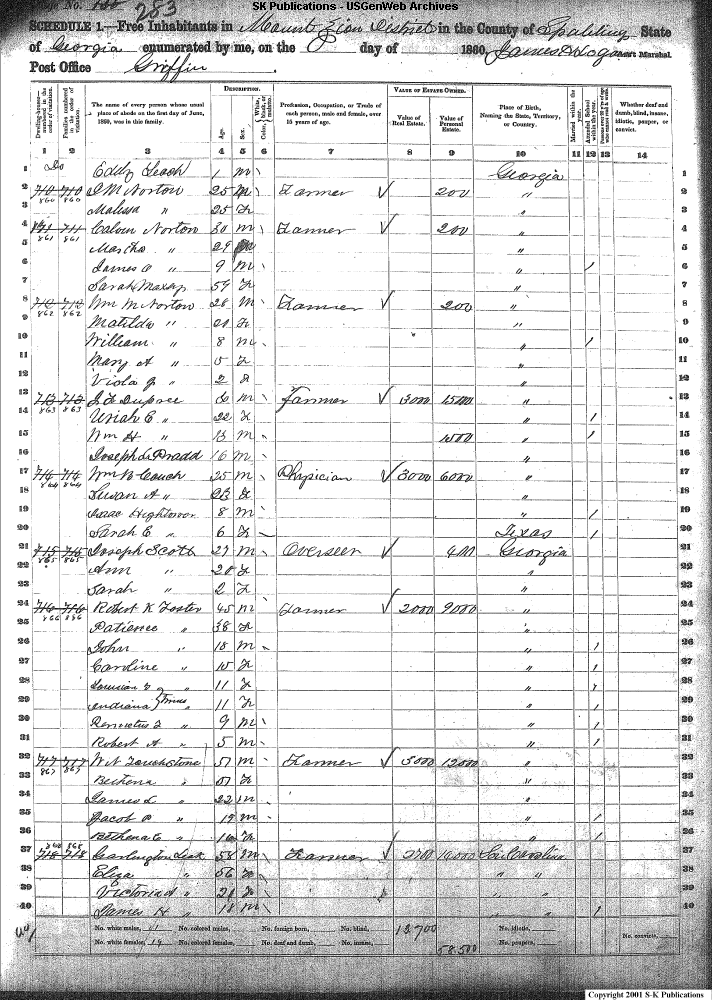 SK Publications - USGenWeb Archives
Page No. 283
SCHEDULE 1.—Free Inhabitants in Mount Zion District in the County of Spalding State
of Georgia enumerated by me, on the 8 day of 1860. Ass't Marshal.
Post Office Griffin.
DESCRIPTION. VALUE OF ESTATE OWNED.
Dwelling-houses—numbered in the order of visitation.
Families numbered in the order of visitation.
The name of every person whose usual place of abode on the first day of June, 1860, was in this family.
Age. Sex. Color, White, black, or mulatto.
Profession, Occupation, or Trade of each person, male and female, over 15 years of age.
Value of Real Estate. Value of Personal Estate.
Place of Birth, Naming the State, Territory, or Country.
Married within the year. Attended School within the year.
Whether deaf and dumb, blind, insane, idiotic, pauper, or convict.
1 2 3 4 5 6 7 8 9 10 11 12 13 14
1 Eddy Leach 1 m Georgia 1
2 710 710 860 860 J M Norton 25 m Farmer 200 " 2
3 Malissa " 25 F " 3
4 711 861 861 Calvin Norton 30 m Farmer 200 " 4
5 Martha " 29 " 5
6 James " 9 m " / 6
7 Sarah 59 F " 7
8 712 712 862 862 Wm M Norton 28 m Farmer 200 " 8
9 Matilda " 21 F " 9
10 William " 8 m " / 10
11 Mary A " 5 F " 11
12 Viola " 2 F " 12
13 713 713 863 863 Dupree m Farmer 3000 " 13
14 Uriah E " 22 F " / 14
15 Wm H " 13 m " / 15
16 Joseph 16 m " 16
17 714 714 864 864 Wm B Couch 25 m Physician 3000 6000 " 17
18 Susan A " 23 F " 18
19 Isaac Hightower 8 m " / 19
20 Sarah E " 6 F Texas / 20
21 715 715 865 865 Joseph Scott 27 m Overseer 400 Georgia 21
22 Ann " 20 F " 22
23 Sarah " 2 F " 23
24 716 716 866 866 Robert K Foster 45 m Farmer 2000 9000 " 24
25 Patience " 38 F " 25
26 John " 18 m " / 26
27 Caroline " 15 F " / 27
28 " 11 F " / 28
29 Indiana Twins " 11 F " / 29
30 " 9 m " / 30
31 Robert A " 5 m " / 31
32 717 717 867 867 Touchstone 57 m Farmer 3000 12000 " 32
33 Bethena " 57 F " 33
34 James L " 22 m " 34
35 Jacob " 19 m " / 35
36 Bethena " 16 F " / 36
37 868 868 718 718 Garlington Leak 58 m Farmer 2700 16000 So. Carolina 37
38 Eliza " 56 F " " 38
39 Victoria " 21 F " " 39
40 James H " 18 m " " / 40
No. white males, No. colored males, No. foreign born, No. blind, 13,700 No. idiotic,
No. white females, 19 No. colored females, No. deaf and dumb, No. insane, 58,500 No. paupers, No. convicts,
Copyright 2001 S-K Publications